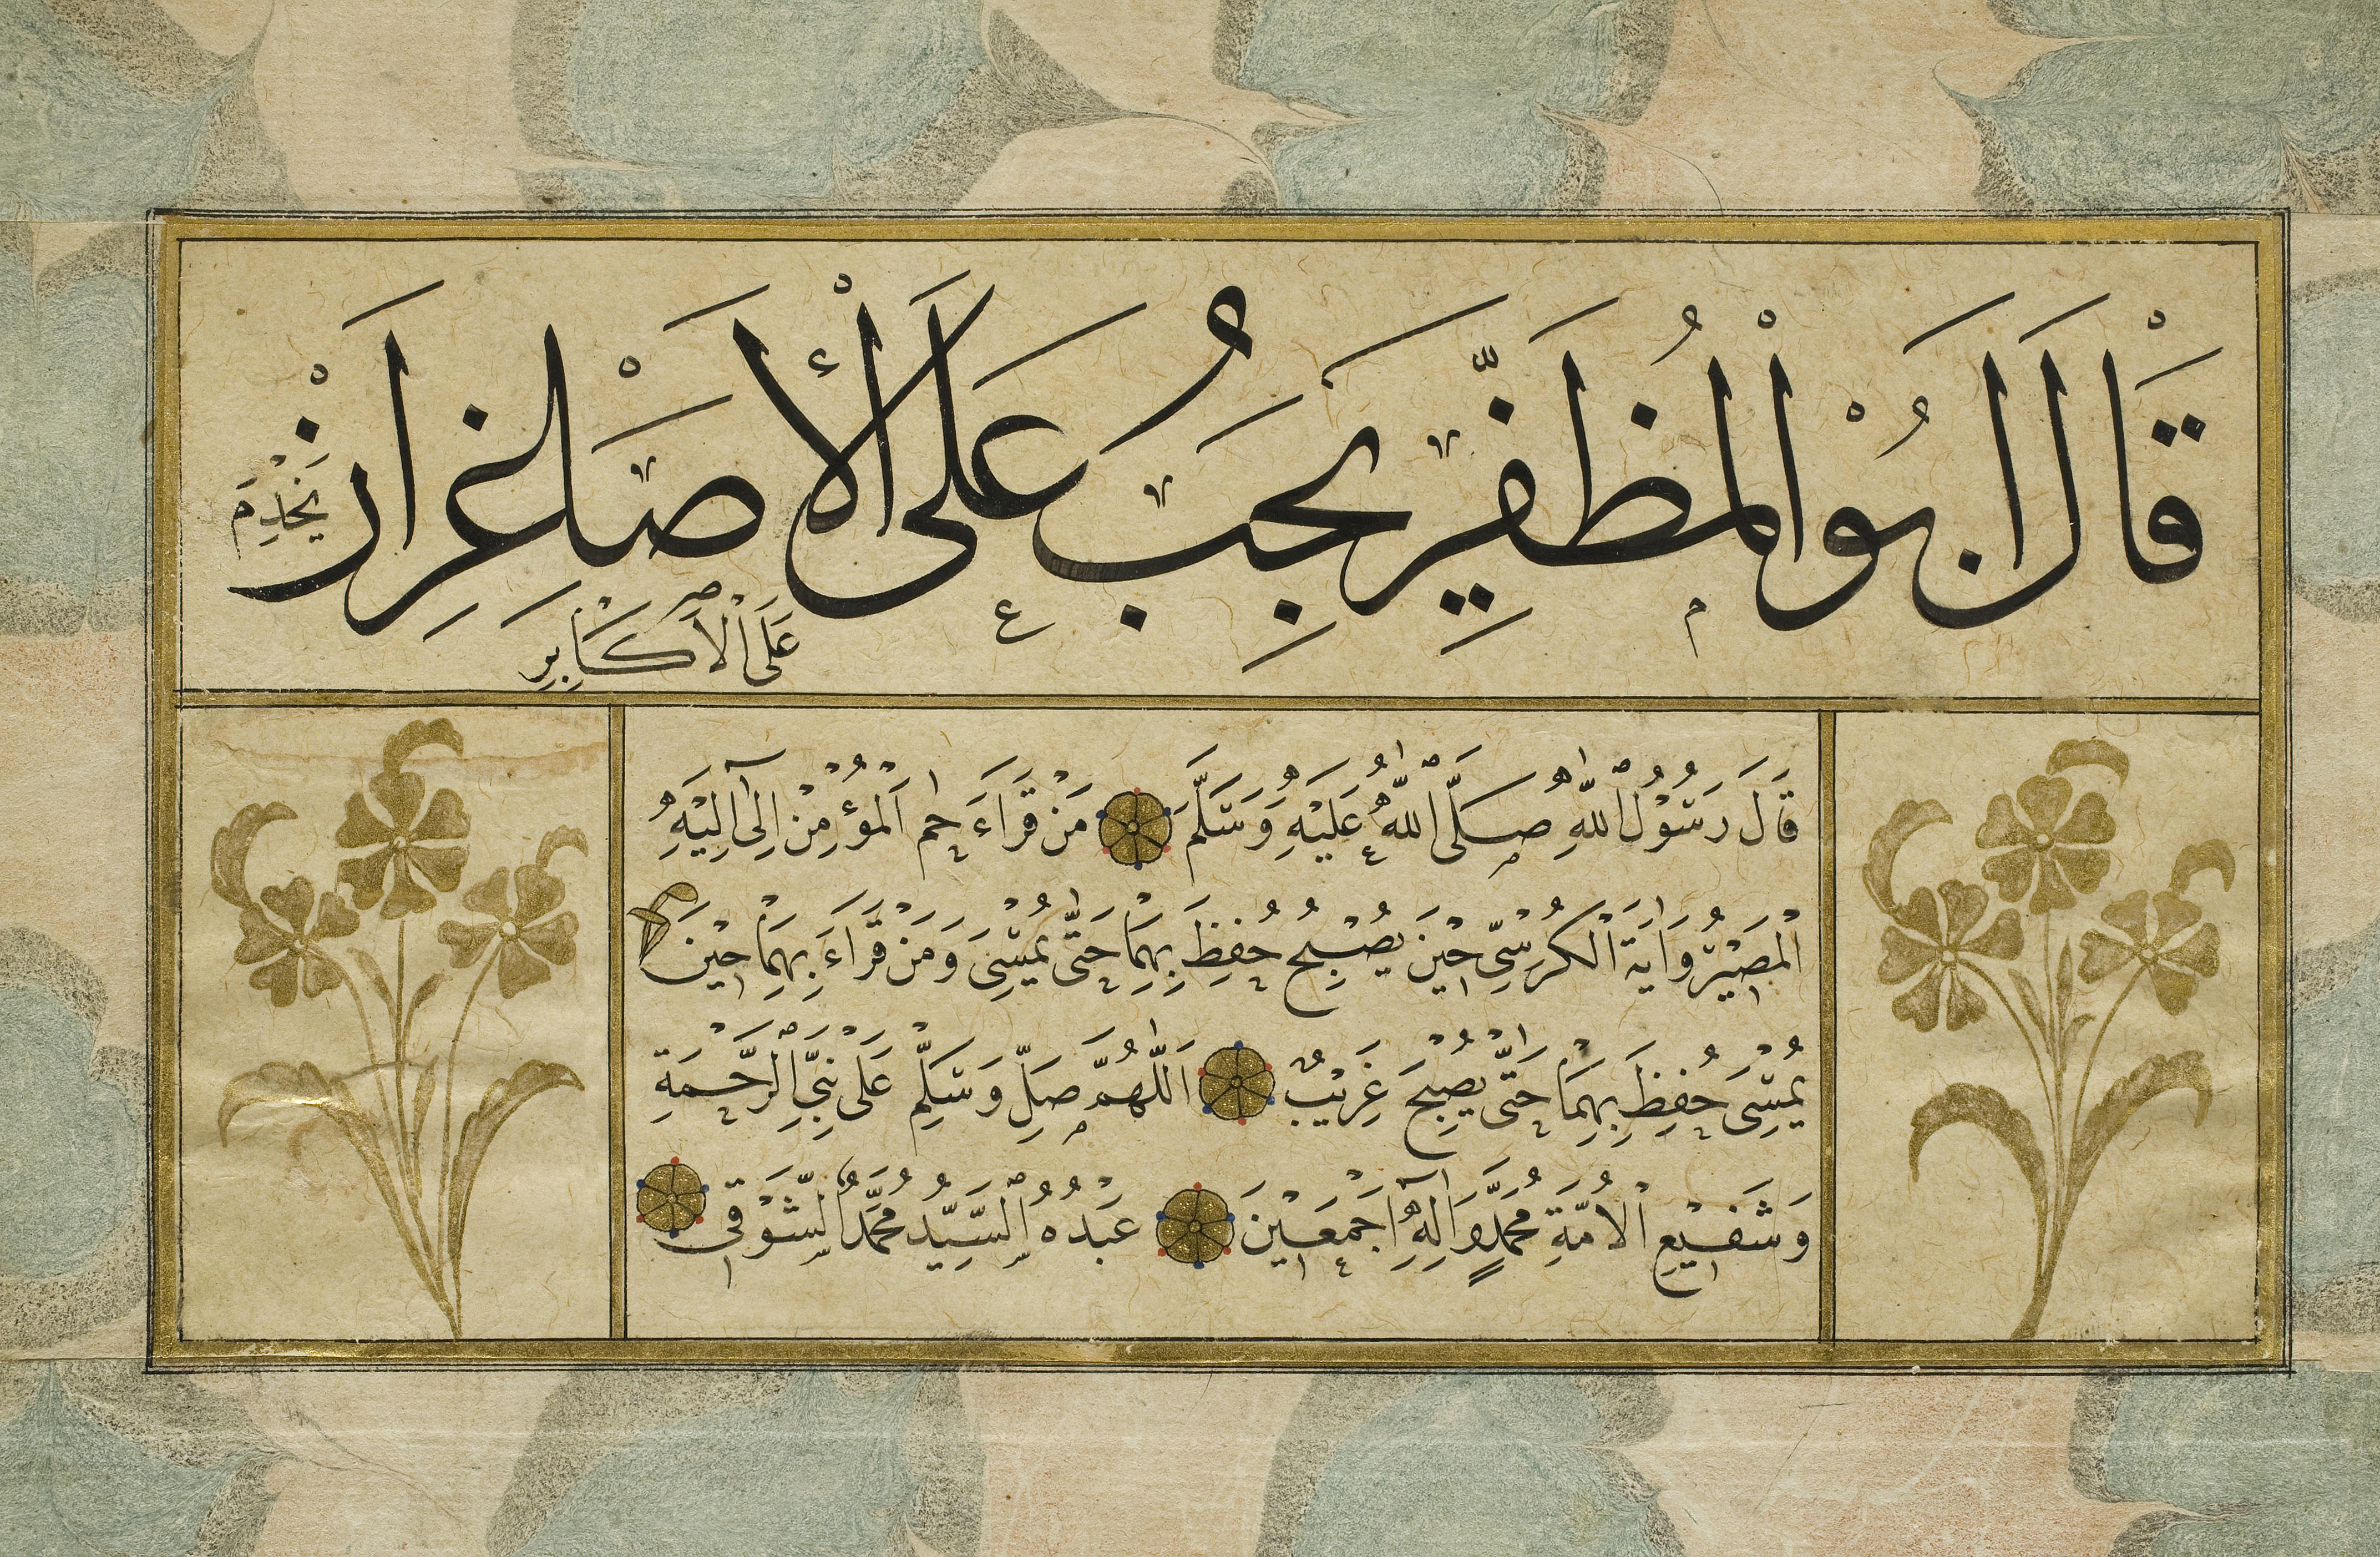 قَالْ اَبُوْ الْمُظَفَّرِ يَجِبُ عَلَى الْأَصَاغِرِ اَنْ
يَخْدِمَ
عَلَى الْاَكَابِرِ
قَالَ رَسُوْلُ اللهِ صَلَّى اللهُ عَلَيْهِ وَسَلَّمَ مَنْ قَرَاءَ حم اَلْمُؤْمِنْ اِلٰى اِلَيْهِ
الْمَصِيْرُ وَاٰيَةَ الْكُرْسِىّ حِيْنَ يُصْبِحُ حُفِظَ بِهِمَا حَتَّى يُمْسِىَ وَمَنْ قَرَاءَ بِهِمَا حِيْنَ
يُمْسِىَ حُفِظَ بِهِمَا حَتَّى يُصْبِحَ غَرِيْبٌ اَللّٰهُمَّ صَلِّ وَسَلِّمْ عَلَى نَبِىِّ الرَّحْمَةِ
وَشَفِيْعِ الْاُمَّةِ مُحَمَّدٍ وَاٰلِهِ اَجْمَعِيْنَ عَبْدُهُ السَّيِّد مُحَمَّدُ الشَّوْقِى